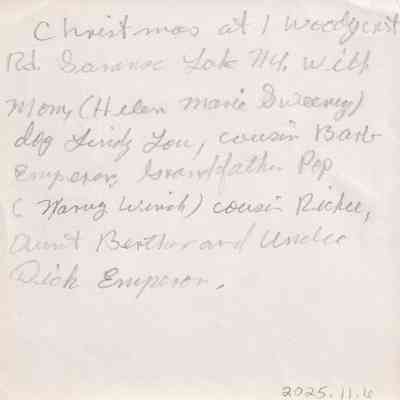 Christmas at 1 Woodycrest
Rd. Saranac Lake NY. with
Mom, (Helen Marie Sweeney)
dog Lindy Lou, cousin Barb
Emperor, Grandfather Pop
( Winch) cousin Richie,
Aunt Bertha and Uncle
Dick Emperor.
2025.11.6